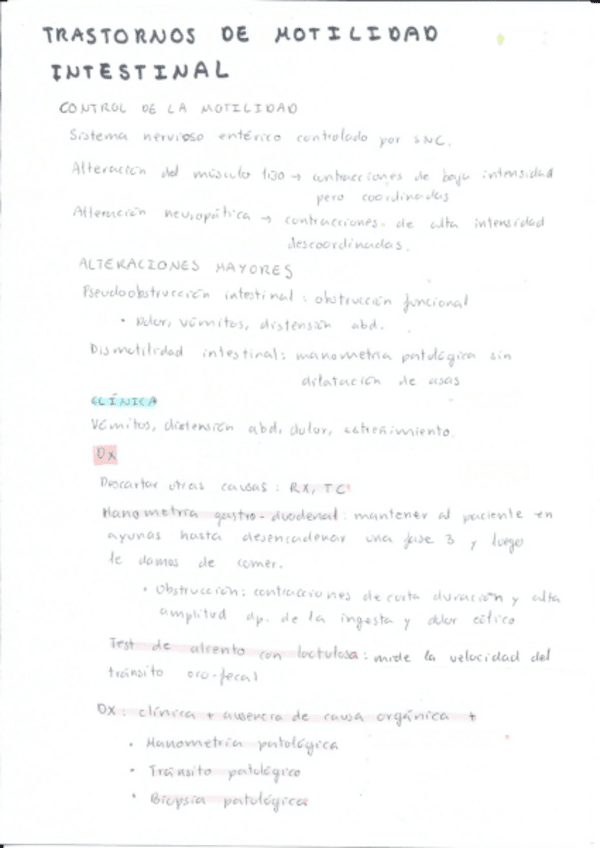 TRASTORNOS DE MOTILIDAD
INTESTINAL
CONTROL DE LA MOTILIDAD
Sistema nervioso entérico controlado por SNC.
Alteración del músculo liso → contracciones de baja intensidad
pero coordinadas
Alteración neuropática → contracciones de alta intensidad
descoordinadas.
ALTERACIONES MAYORES
Pseudoobstrucción intestinal: obstrucción funcional
• Dolor, vómitos, distensión abd.
Dismotilidad intestinal: manometría patológica sin
dilatación de asas
CLÍNICA
Vómitos, distensión abd, dolor, estreñimiento.
Dx
Descartar otras causas: RX, TC
Manometría gastro-duodenal: mantener al paciente en
ayunas hasta desencadenar una fase 3 y luego
le damos de comer.
• Obstrucción: contracciones de corta duración y alta
amplitud dp. de la ingesta y dolor cólico
Test de aliento con lactulosa: mide la velocidad del
tránsito oro-fecal
DX: clínica + ausencia de causa orgánica +
• Manometría patológica
• Tránsito patológico
• Biopsia patológica